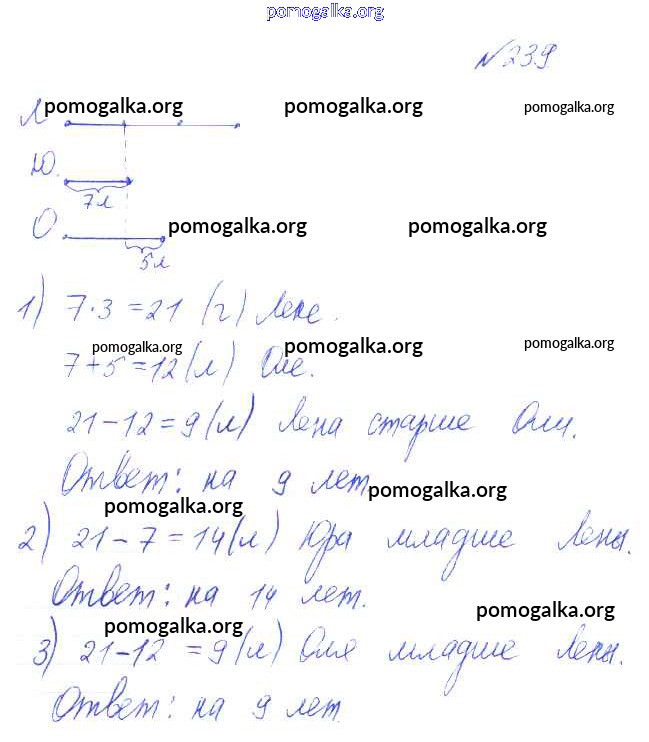 pomogalka.org
№ 239
Л pomogalka.org pomogalka.org pomogalka.org
Ю.
7 л
О pomogalka.org pomogalka.org
5 л
1) 7·3 = 21 (г) Лене.
pomogalka.org pomogalka.org pomogalka.org
7 + 5 = 12 (л) Оле.
21 – 12 = 9 (л) Лена старше Оли.
Ответ: на 9 лет
pomogalka.org pomogalka.org
2) 21 – 7 = 14 (л) Юра младше Лены.
Ответ: на 14 лет.
pomogalka.org pomogalka.org
3) 21–12 = 9 (л) Оля младше Лены.
Ответ: на 9 лет.